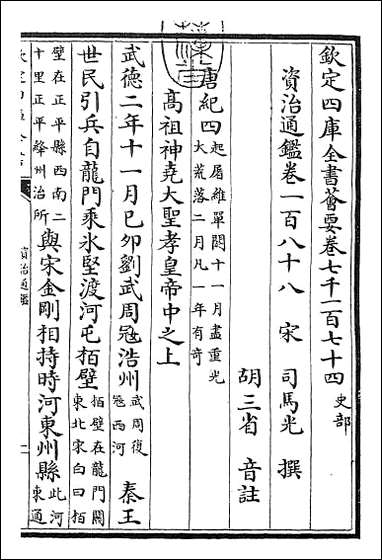 欽定四庫全書薈要卷七千一百七十四 史部
資治通鑑卷一百八十八 宋 司馬光 撰
胡三省 音註
唐紀四 起屠維單閼十一月盡重光
大荒落二月凡一年有奇
高祖神堯大聖孝皇帝中之上
武德二年十一月己卯劉武周寇浩州 武周復
寇西河 秦王
世民引兵自龍門乘氷堅渡河屯栢壁 栢壁在龍門關
東北宋白曰栢
壁在正平縣西南二
十里正平絳州治所 與宋金剛相持時河東州縣 此河
東通
資治通鑑